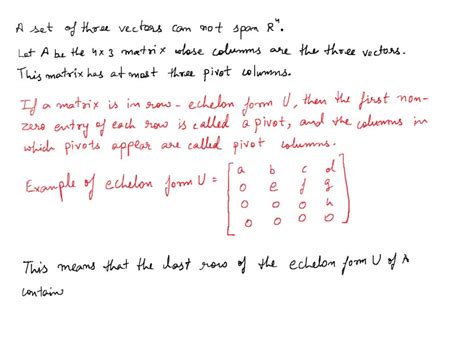 A set of three vectors can not span R⁴.
Let A be the 4 x 3 matrix whose columns are the three vectors.
This matrix has at most three pivot columns.
If a matrix is in row-echelon form U, then the first non-
zero entry of each row is called a pivot, and the columns in
which pivots appear are called pivot columns.
Example of echelon form U = [a b c d
0 e f g
0 0 0 h
0 0 0 0]
This means that the last row of the echelon form U of A
contain